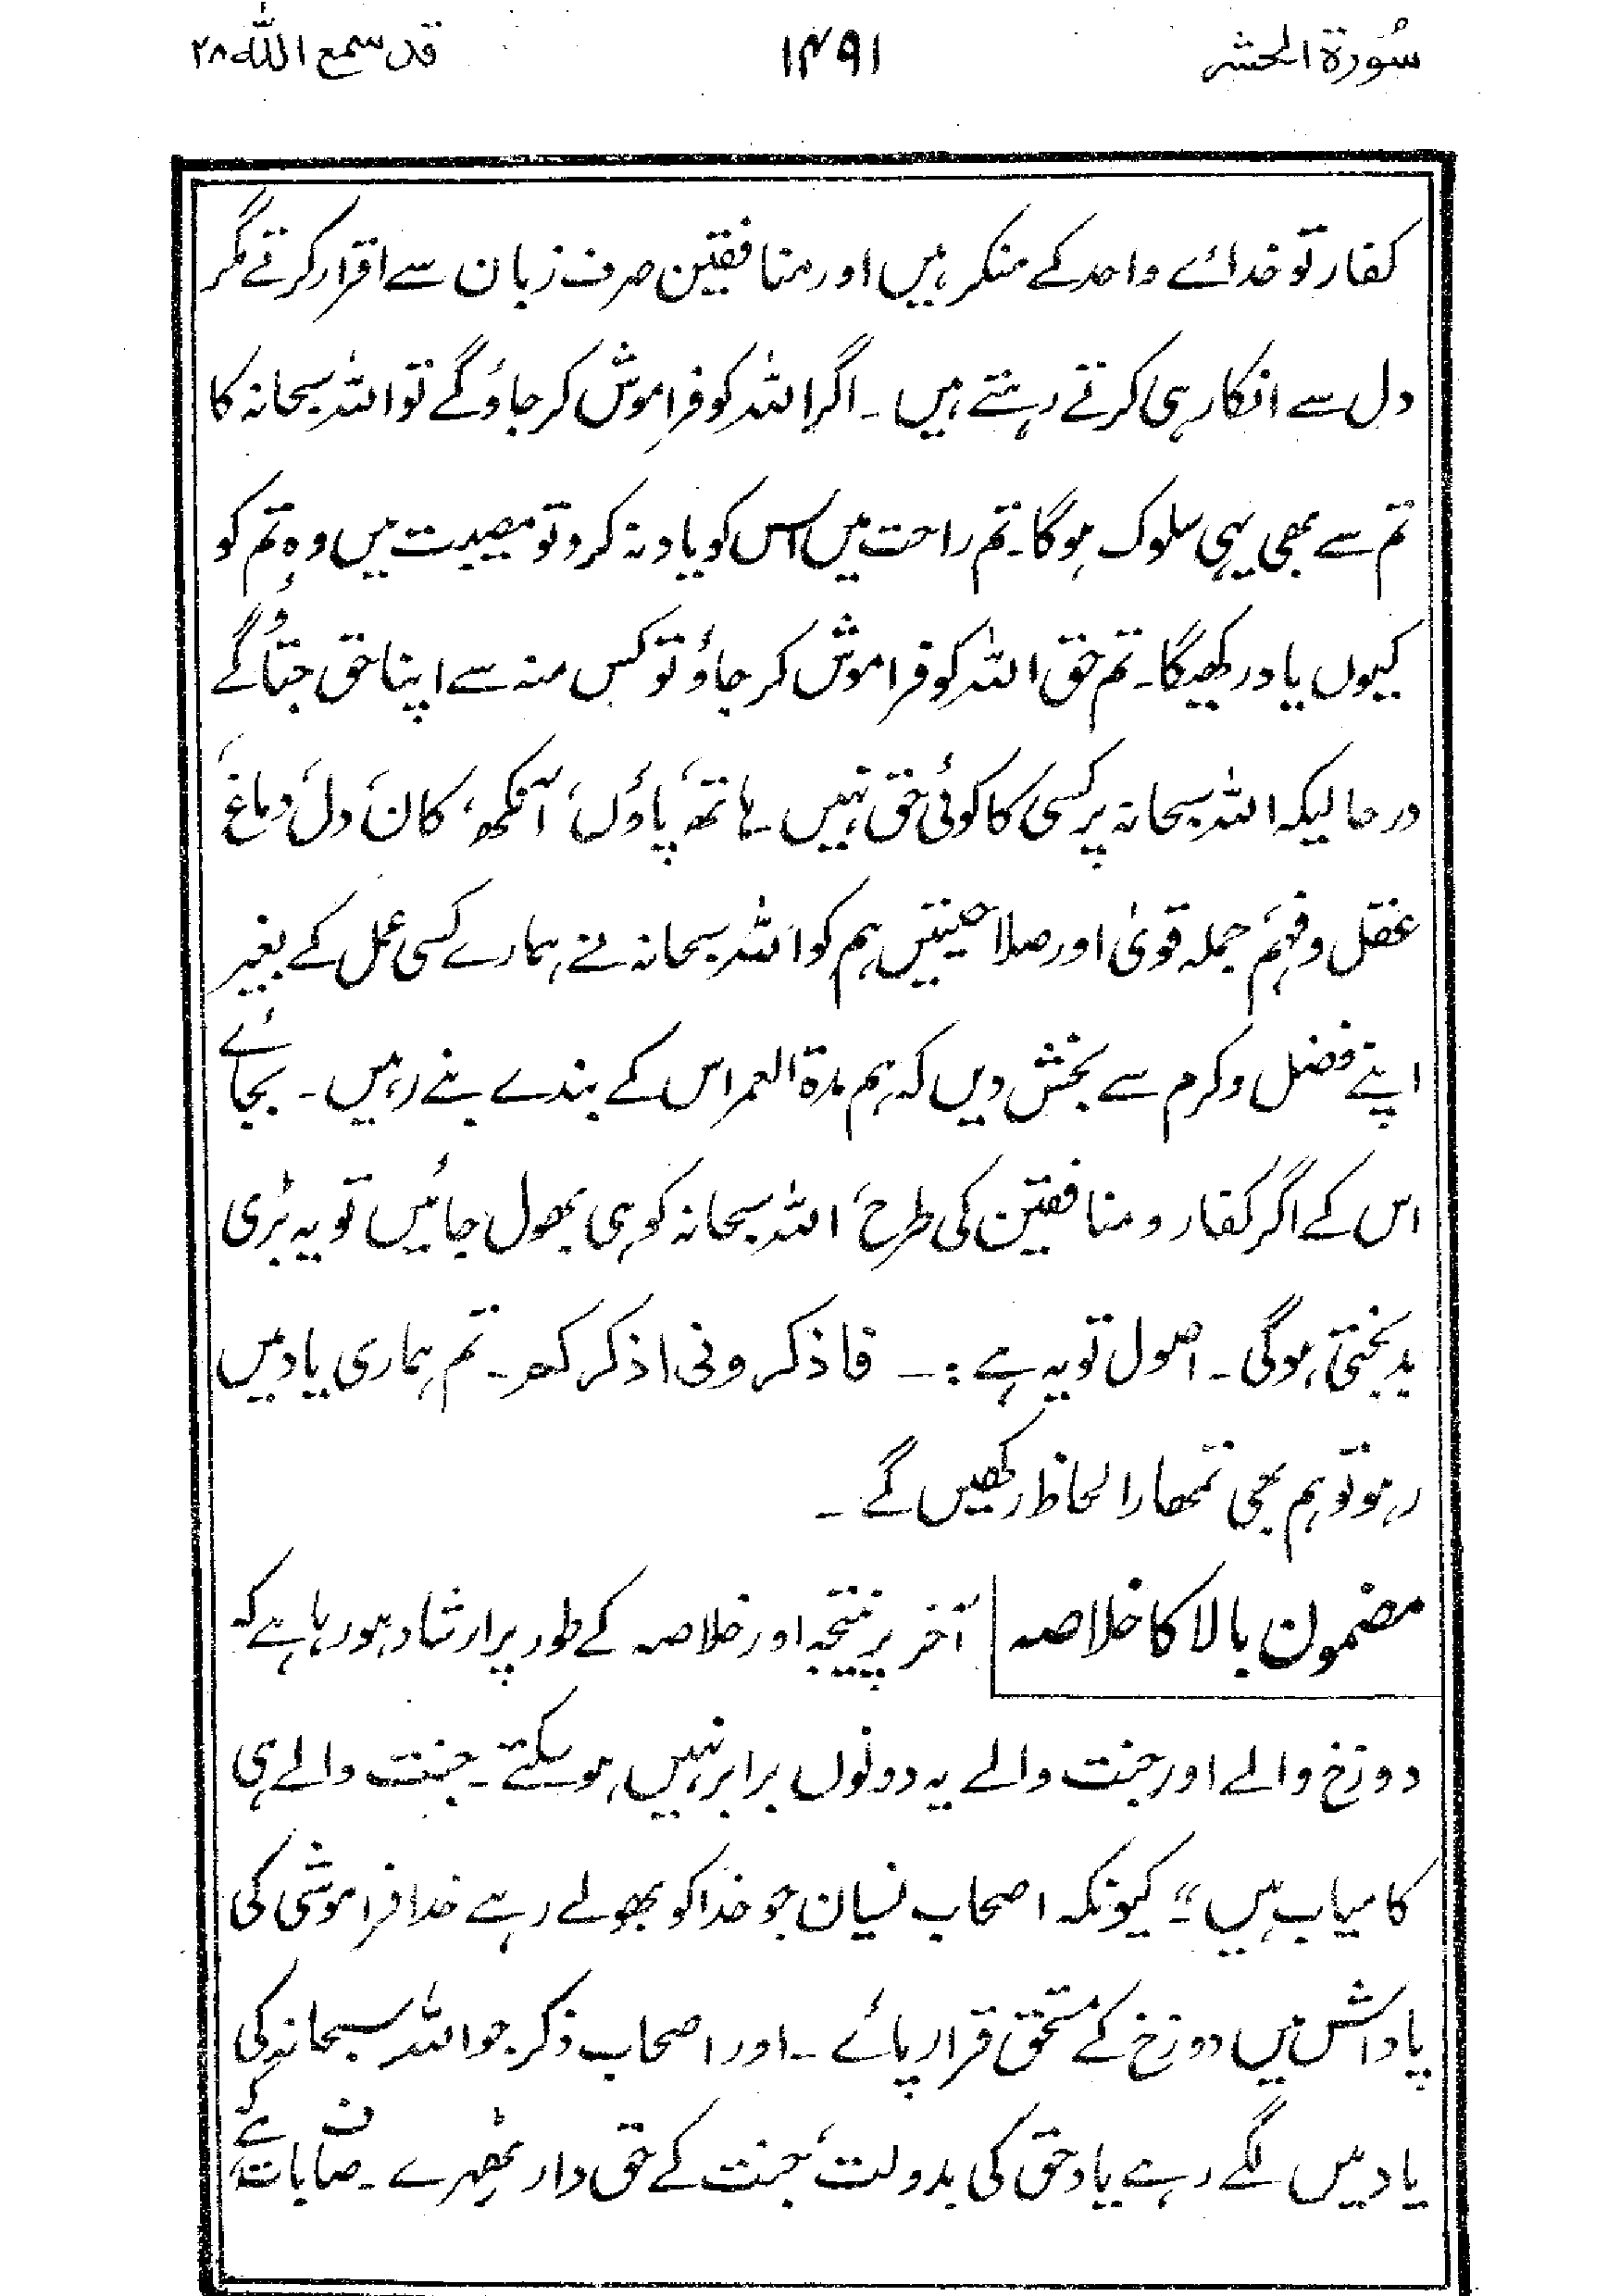 سُورۃ الحشر ۱۴۹۱ قد سمع اللہ ۲۸
کفار تو خدائے واحد کے منکر ہیں اور منافقین صرف زبان سے اقرار کرتے مگر
دل سے انکار ہی کرتے رہتے ہیں ۔ اگر اللہ کو فراموش کر جاؤ گے تو اللہ سبحانہ کا
تم سے بھی یہی سلوک ہوگا ۔ تم راحت میں اس کو یاد نہ کرو تو مصیبت میں وہ تم کو
کیوں یاد رکھیگا ۔ تم حق اللہ کو فراموش کر جاؤ تو کس منہ سے اپنا حق جتاؤ گے
درحالیکہ اللہ سبحانہ پر کسی کا کوئی حق نہیں ۔ ہاتھ، پاؤں، آنکھ، کان، دل، دماغ،
عقل و فہم، جملہ قویٰ اور صلاحیتیں ہم کو اللہ سبحانہ نے ہمارے کسی عمل کے بغیر
اپنے فضل و کرم سے بخش دیں کہ ہم مدۃ العمر اس کے بندے بنے رہیں ۔ بجائے
اس کے اگر کفار و منافقین کی طرح، اللہ سبحانہ کو ہی بھول جائیں تو یہ بڑی
بدبختی ہوگی ۔ اصول تو یہ ہے :۔ فاذکرونی اذکرکم ۔ تم ہماری یاد میں
رہو تو ہم بھی تمھارا لحاظ رکھیں گے ۔
مضمون بالا کا خلاصہ آخر پر نتیجہ اور خلاصہ کے طور پر ارشاد ہو رہا ہے کہ
دوزخ والے اور جنت والے یہ دونوں برابر نہیں ہو سکتے ۔ جنت والے ہی
کامیاب ہیں“؛ کیونکہ اصحاب نسیان جو خدا کو بھولے رہے خدا فراموشی کی
پاداش میں دوزخ کے مستحق قرار پائے ۔ اور اصحاب ذکر جو اللہ سبحانہ کی
یاد میں لگے رہے یاد حق کی بدولت، جنت کے حق دار ٹھہرے ۔